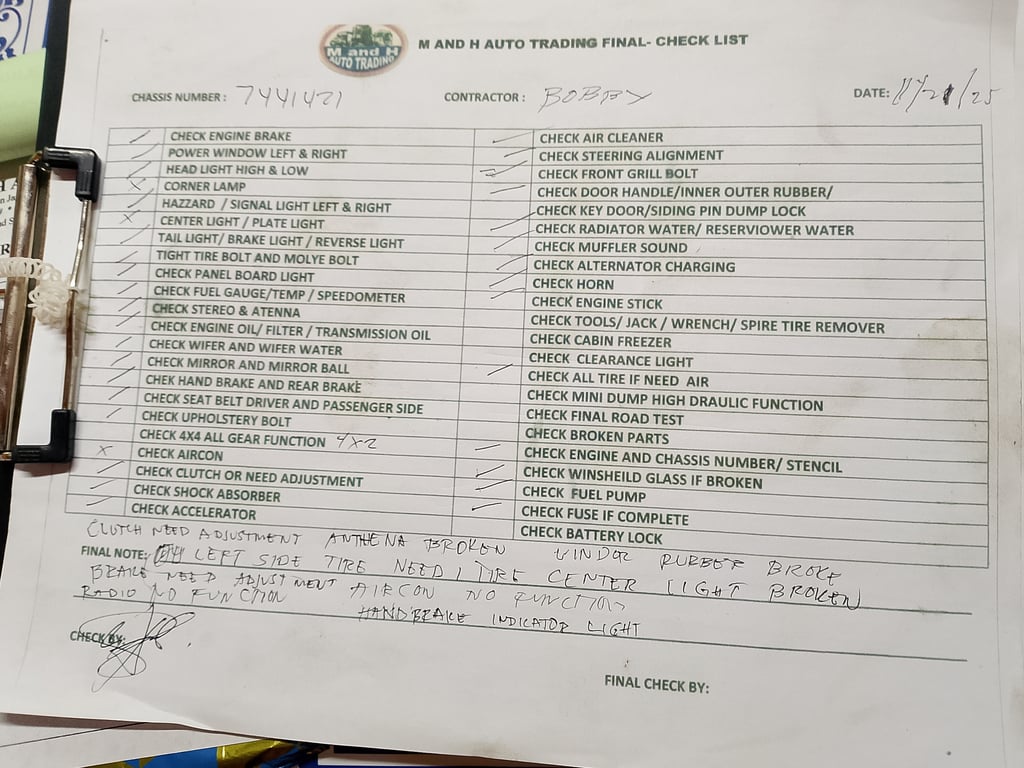 M and H
AUTO TRADING
M AND H AUTO TRADING FINAL- CHECK LIST
CHASSIS NUMBER : 7441421
CONTRACTOR : BOBBY
DATE: 11/21/25
CHECK ENGINE BRAKE
POWER WINDOW LEFT & RIGHT
HEAD LIGHT HIGH & LOW
CORNER LAMP
HAZZARD / SIGNAL LIGHT LEFT & RIGHT
CENTER LIGHT / PLATE LIGHT
TAIL LIGHT/ BRAKE LIGHT / REVERSE LIGHT
TIGHT TIRE BOLT AND MOLYE BOLT
CHECK PANEL BOARD LIGHT
CHECK FUEL GAUGE/TEMP / SPEEDOMETER
CHECK STEREO & ATENNA
CHECK ENGINE OIL/ FILTER / TRANSMISSION OIL
CHECK WIFER AND WIFER WATER
CHECK MIRROR AND MIRROR BALL
CHEK HAND BRAKE AND REAR BRAKE
CHECK SEAT BELT DRIVER AND PASSENGER SIDE
CHECK UPHOLSTERY BOLT
CHECK 4X4 ALL GEAR FUNCTION 4X2
CHECK AIRCON
CHECK CLUTCH OR NEED ADJUSTMENT
CHECK SHOCK ABSORBER
CHECK ACCELERATOR
CHECK AIR CLEANER
CHECK STEERING ALIGNMENT
CHECK FRONT GRILL BOLT
CHECK DOOR HANDLE/INNER OUTER RUBBER/
CHECK KEY DOOR/SIDING PIN DUMP LOCK
CHECK RADIATOR WATER/ RESERVIOWER WATER
CHECK MUFFLER SOUND
CHECK ALTERNATOR CHARGING
CHECK HORN
CHECK ENGINE STICK
CHECK TOOLS/ JACK / WRENCH/ SPIRE TIRE REMOVER
CHECK CABIN FREEZER
CHECK CLEARANCE LIGHT
CHECK ALL TIRE IF NEED AIR
CHECK MINI DUMP HIGH DRAULIC FUNCTION
CHECK FINAL ROAD TEST
CHECK BROKEN PARTS
CHECK ENGINE AND CHASSIS NUMBER/ STENCIL
CHECK WINSHEILD GLASS IF BROKEN
CHECK FUEL PUMP
CHECK FUSE IF COMPLETE
CHECK BATTERY LOCK
CLUTCH NEED ADJUSTMENT ANTHENA BROKEN RUBBER BROKE
FINAL NOTE: LEFT SIDE TIRE NEED 1 TIRE CENTER LIGHT BROKEN
BRAKE NEED ADJUSTMENT AIRCON NO FUNCTION
RADIO NO FUNCTION HANDBRAKE INDICATOR LIGHT
CHECK BY:
FINAL CHECK BY: